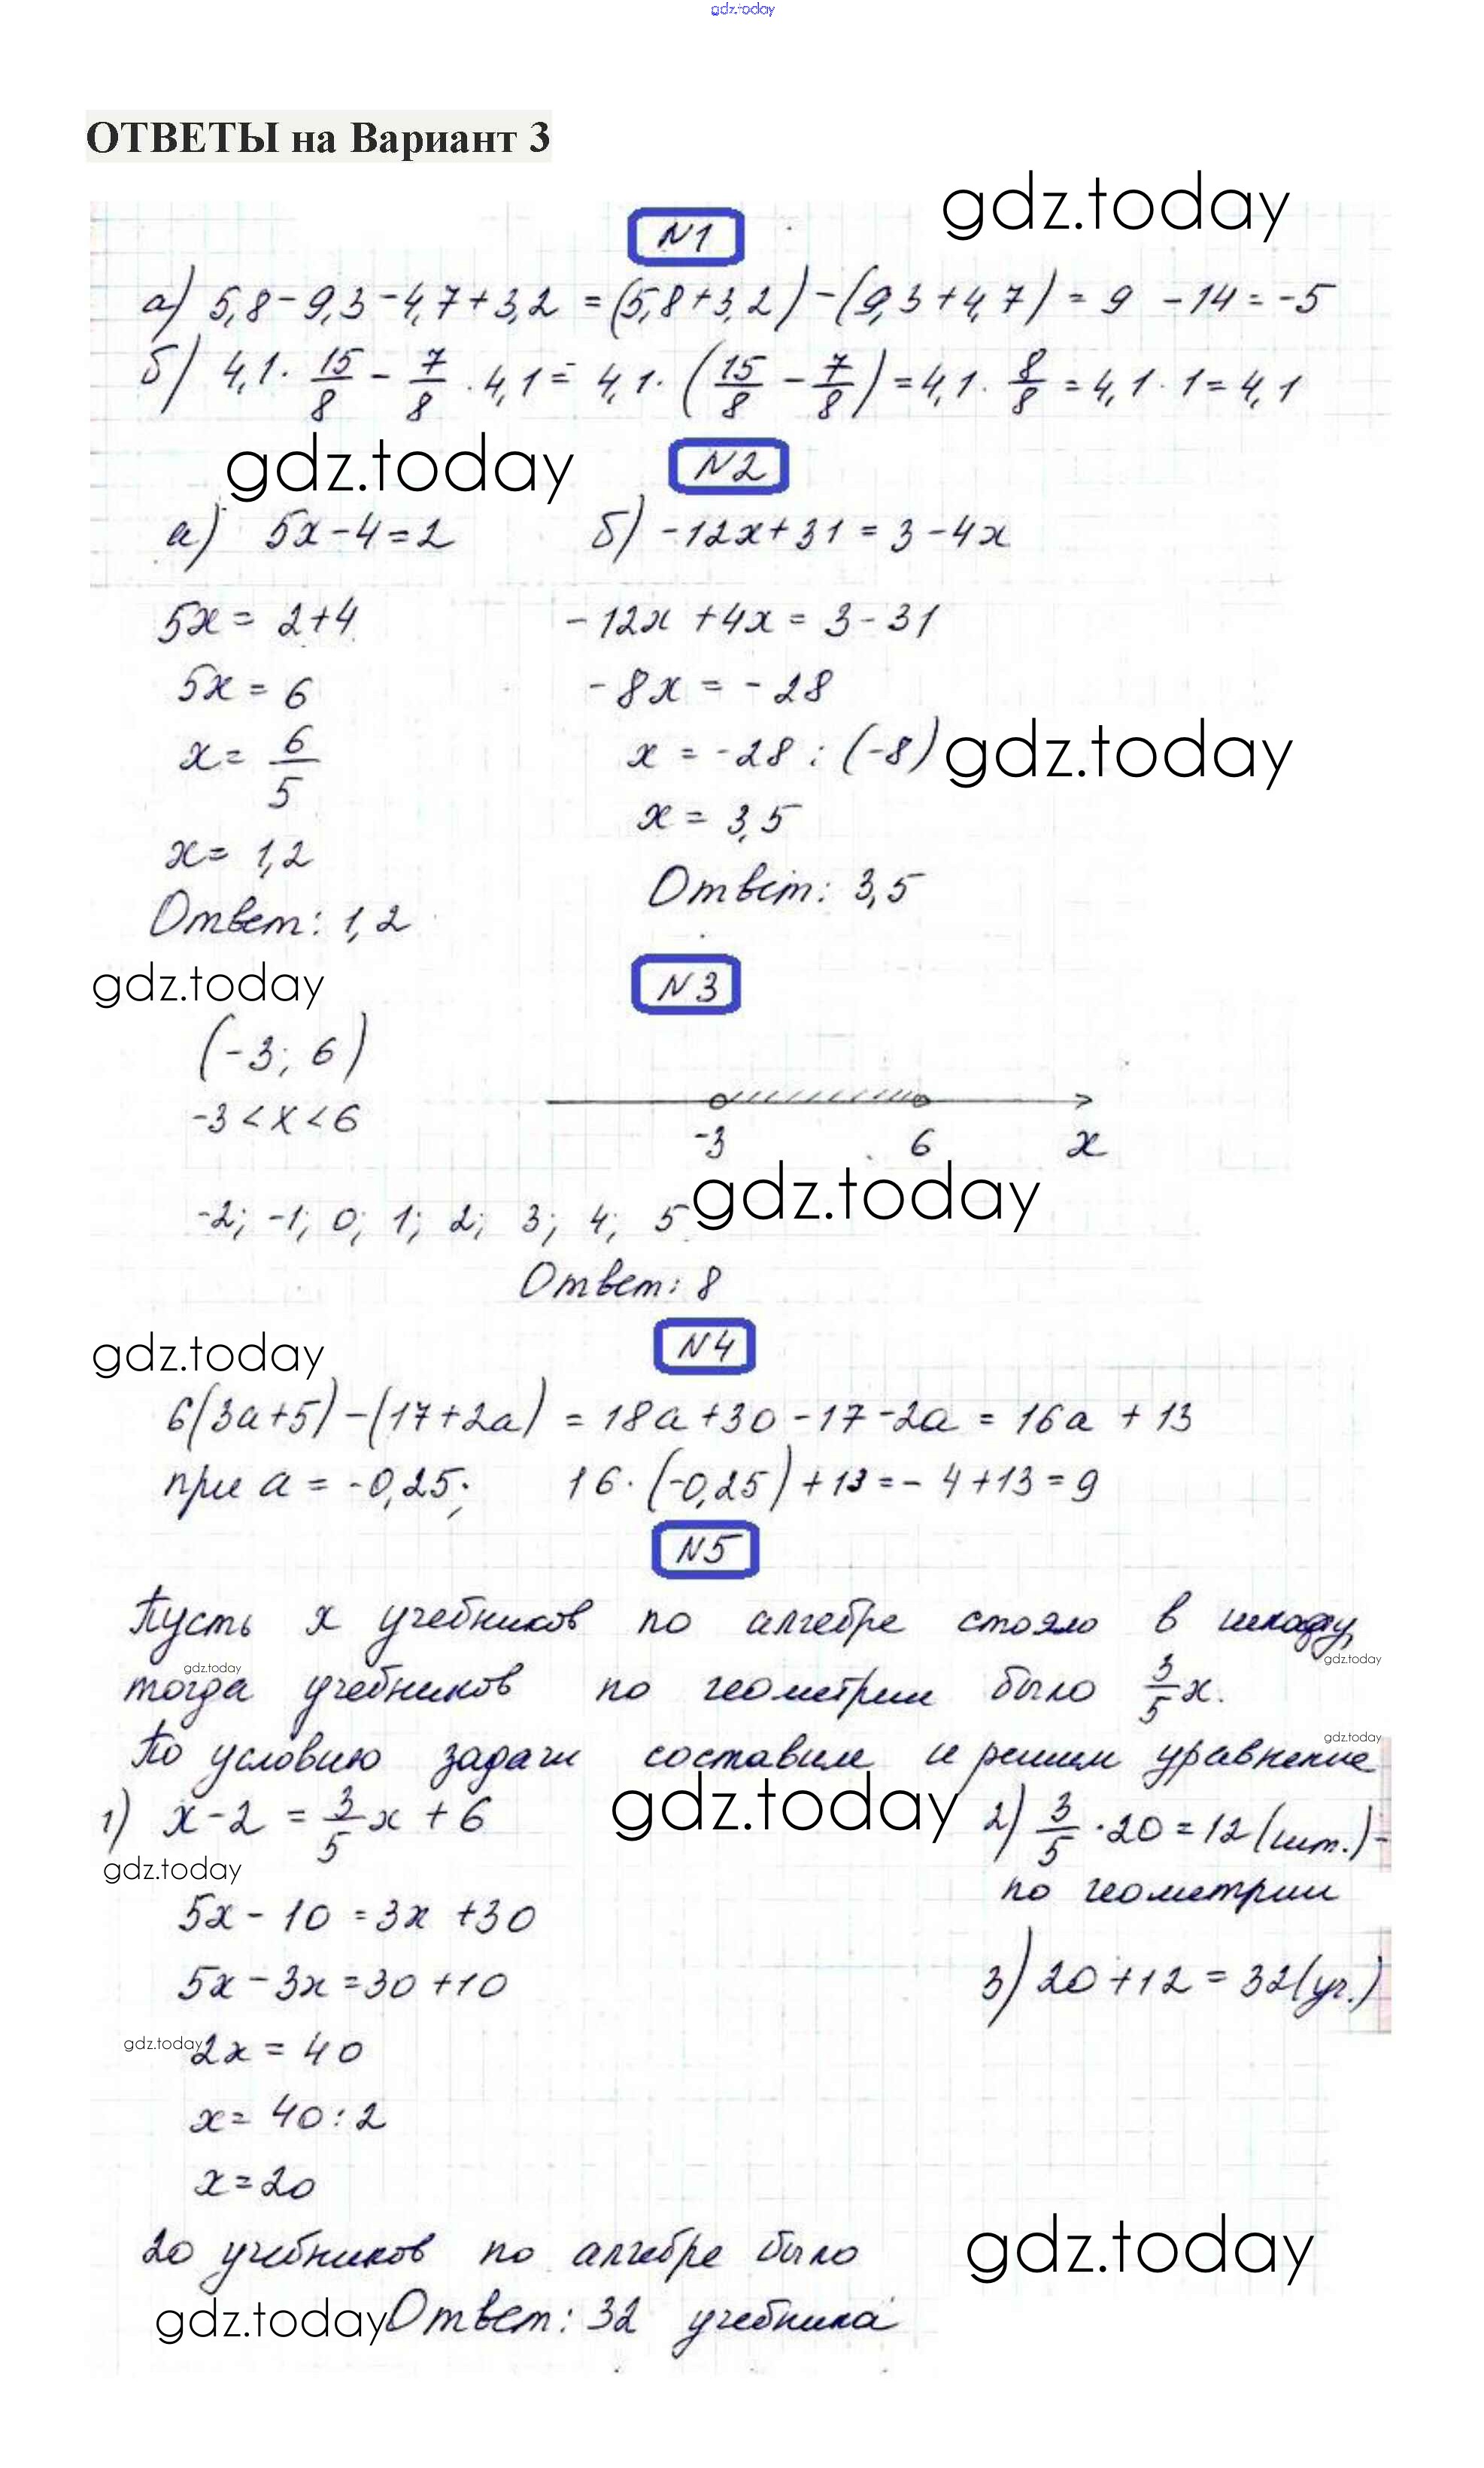 gdz.today
ОТВЕТЫ на Вариант 3
gdz.today
N1
а) 5,8 - 9,3 - 4,7 + 3,2 = (5,8 + 3,2) - (9,3 + 4,7) = 9 - 14 = -5
б) 4,1 · 15/8 - 7/8 · 4,1 = 4,1 · (15/8 - 7/8) = 4,1 · 8/8 = 4,1 · 1 = 4,1
gdz.today
N2
а) 5x - 4 = 2
5x = 2 + 4
5x = 6
x = 6/5
x = 1,2
Ответ: 1,2
б) -12x + 31 = 3 - 4x
-12x + 4x = 3 - 31
-8x = -28
x = -28 : (-8)
gdz.today
x = 3,5
Ответ: 3,5
gdz.today
N3
(-3; 6)
-3 < x < 6
-3 6 x
-2; -1; 0; 1; 2; 3; 4; 5
gdz.today
Ответ: 8
gdz.today
N4
6(3a+5) - (17+2a) = 18a + 30 - 17 - 2a = 16a + 13
при a = -0,25; 16 · (-0,25) + 13 = -4 + 13 = 9
N5
Пусть x учебников по алгебре стояло в шкафу,
gdz.today
gdz.today
тогда учебников по геометрии было 3/5 x.
gdz.today
По условию задачи составим и решим уравнение
1) x - 2 = 3/5 x + 6
gdz.today
gdz.today
5x - 10 = 3x + 30
5x - 3x = 30 + 10
gdz.today
2x = 40
x = 40 : 2
x = 20
2) 3/5 · 20 = 12 (шт.) -
по геометрии
3) 20 + 12 = 32 (уч.)
20 учебников по алгебре было
gdz.today
gdz.today
Ответ: 32 учебника